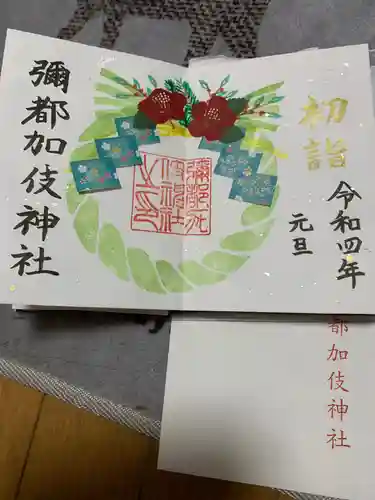 初詣
令和四年
元旦
彌都加伎神社
都加伎神社